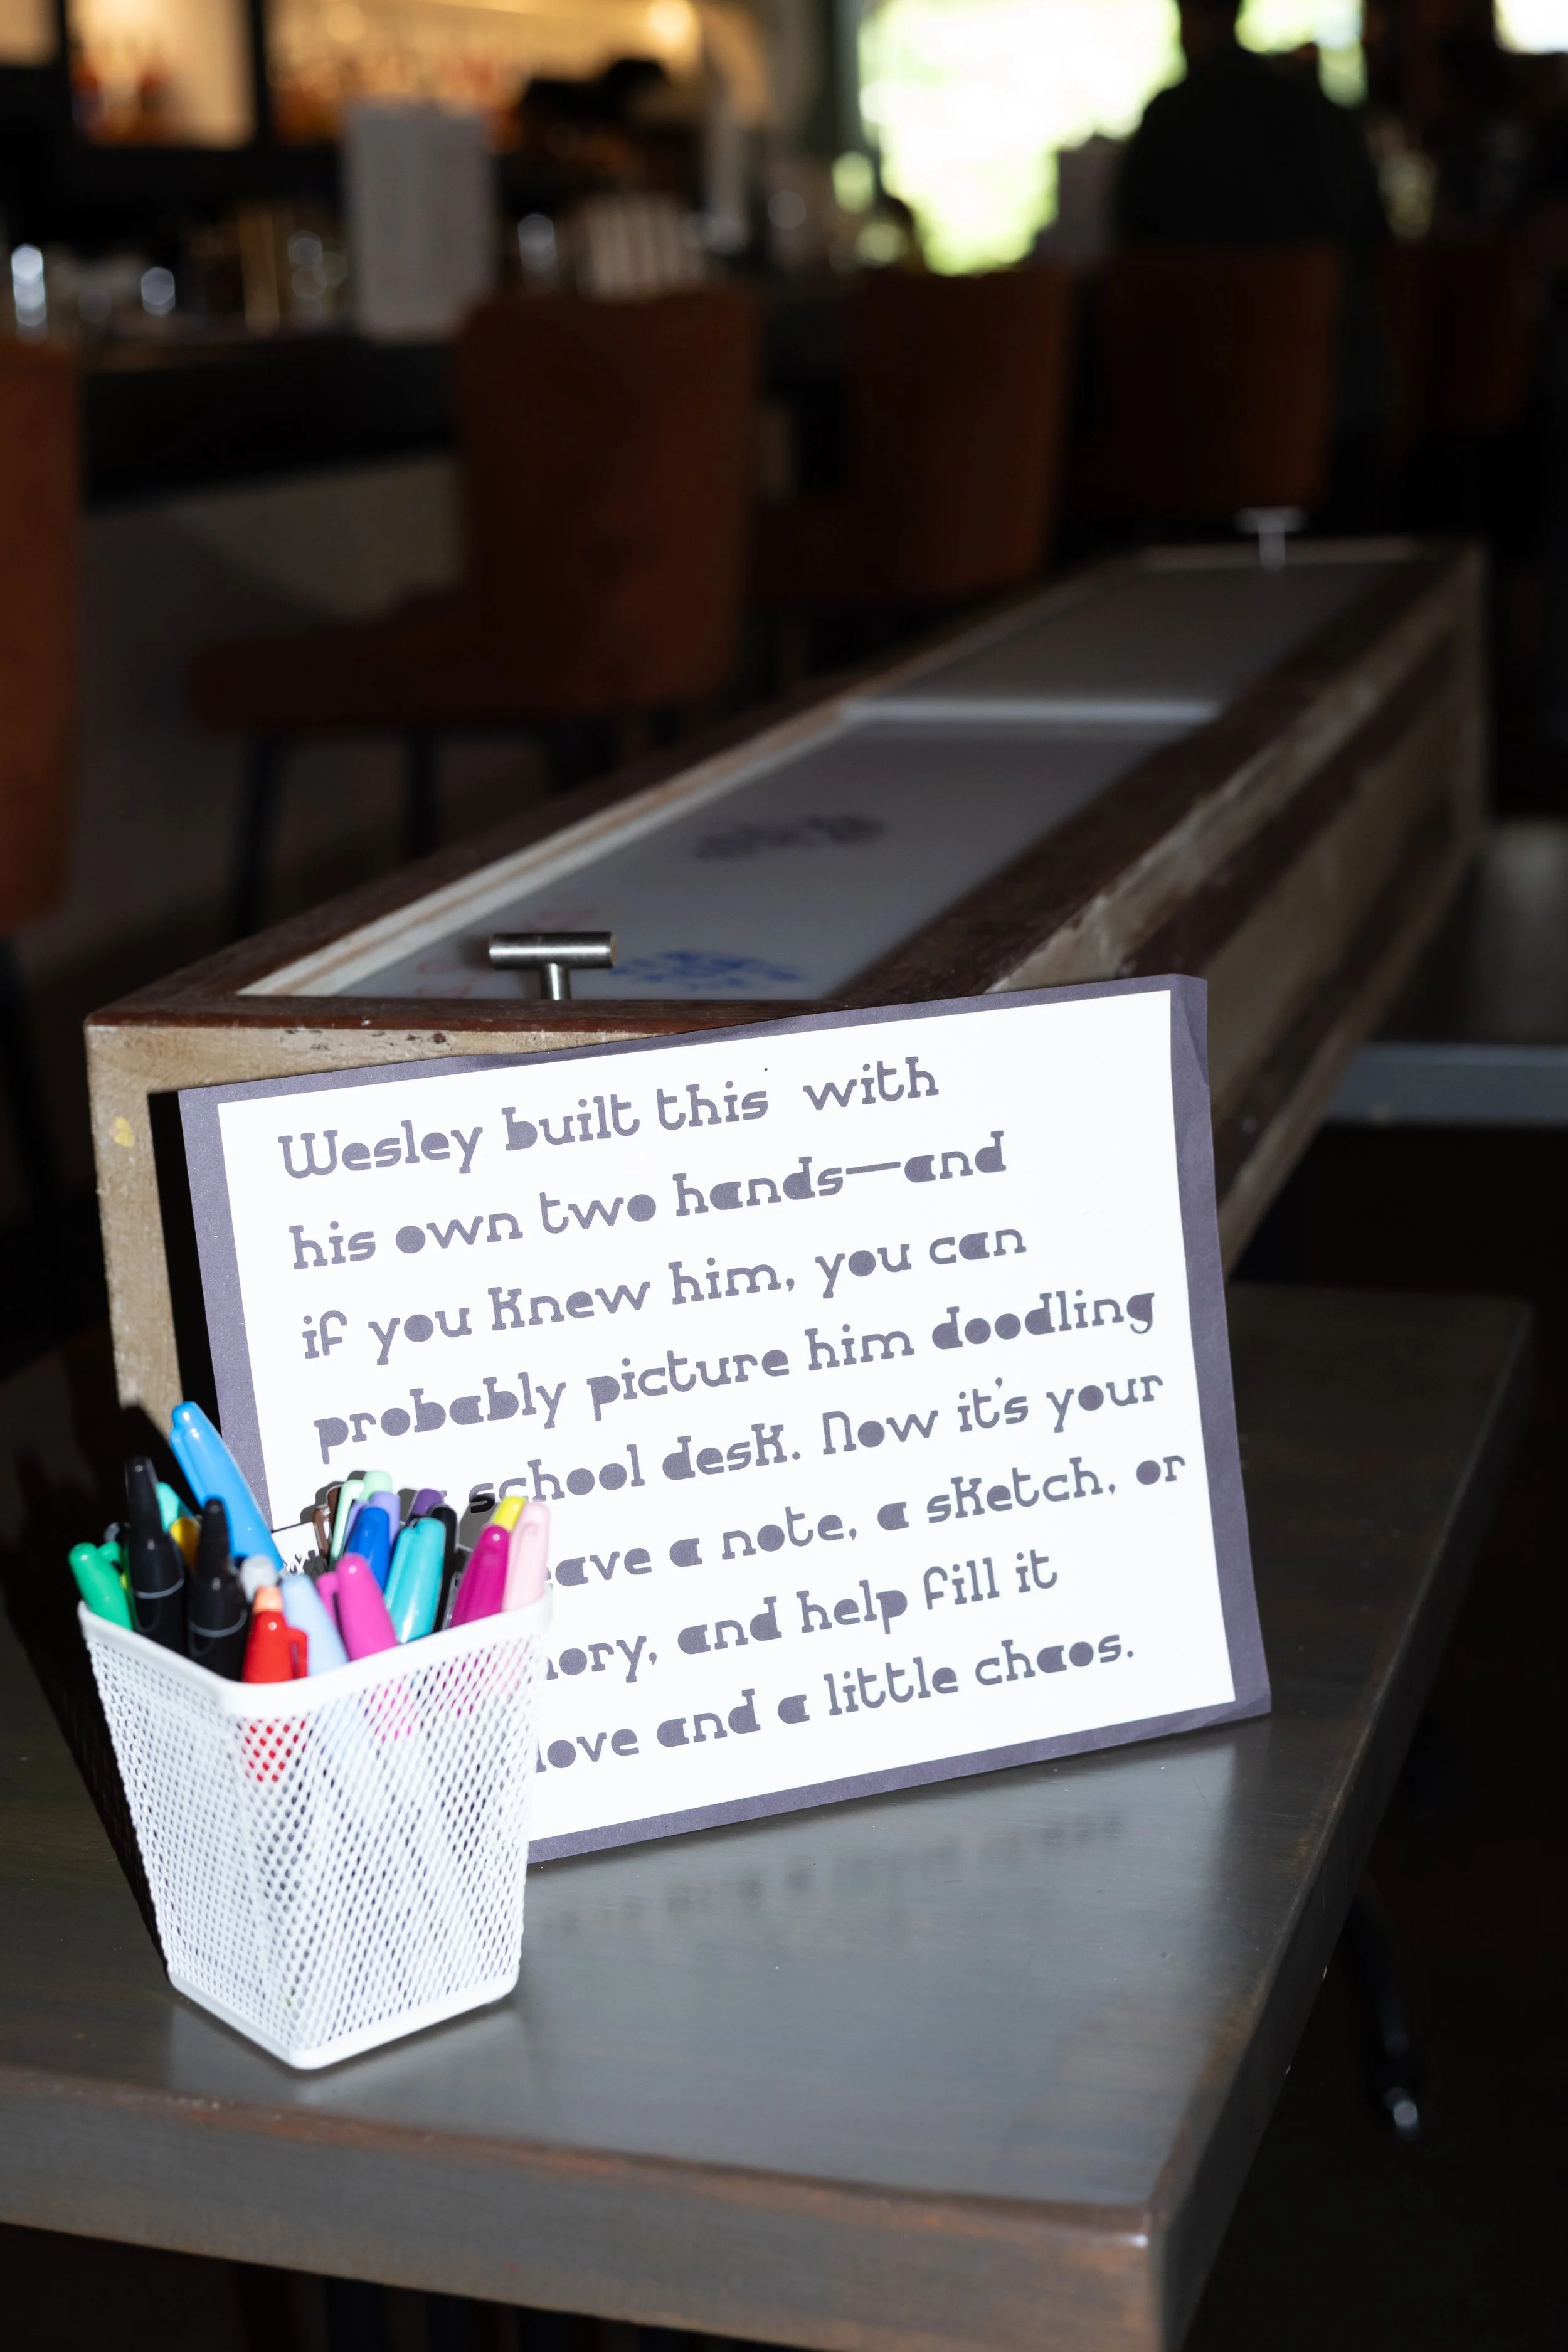 Wesley built this with
his own two hands—and
if you knew him, you can
probably picture him doodling
school desk. Now it's your
a note, a sketch, or
and help fill it
love and a little chaos.